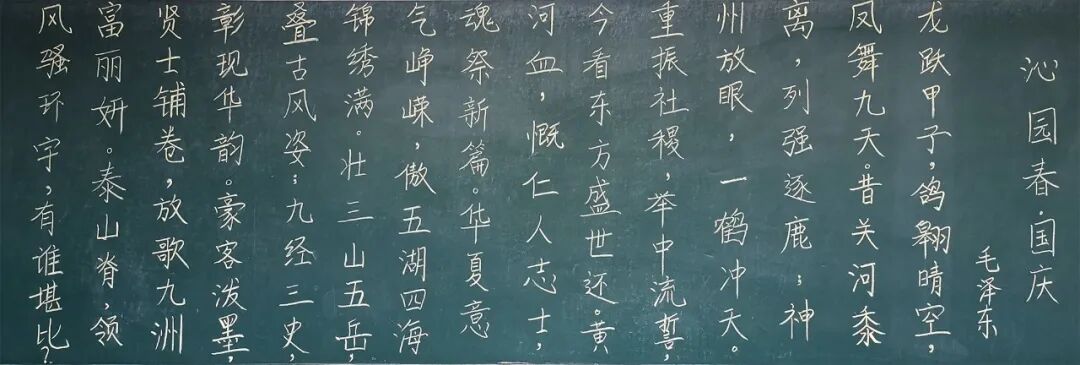 沁园春·国庆
毛泽东
龙跃甲子，鸽翱晴空，
凤舞九天。昔关河黍
离，列强逐鹿；神
州放眼，一鹤冲天。
重振社稷，举中流誓，
今看东方盛世还。黄
河血，慨仁人志士，
魂祭新篇。华夏意
气峥嵘，傲五湖四海
锦绣满。壮三山五岳，
叠古风姿；九经三史，
彰现华韵。豪客泼墨，
贤士铺卷，放歌九洲
富丽妍。泰山脊，领
风强环宇，有谁堪比？